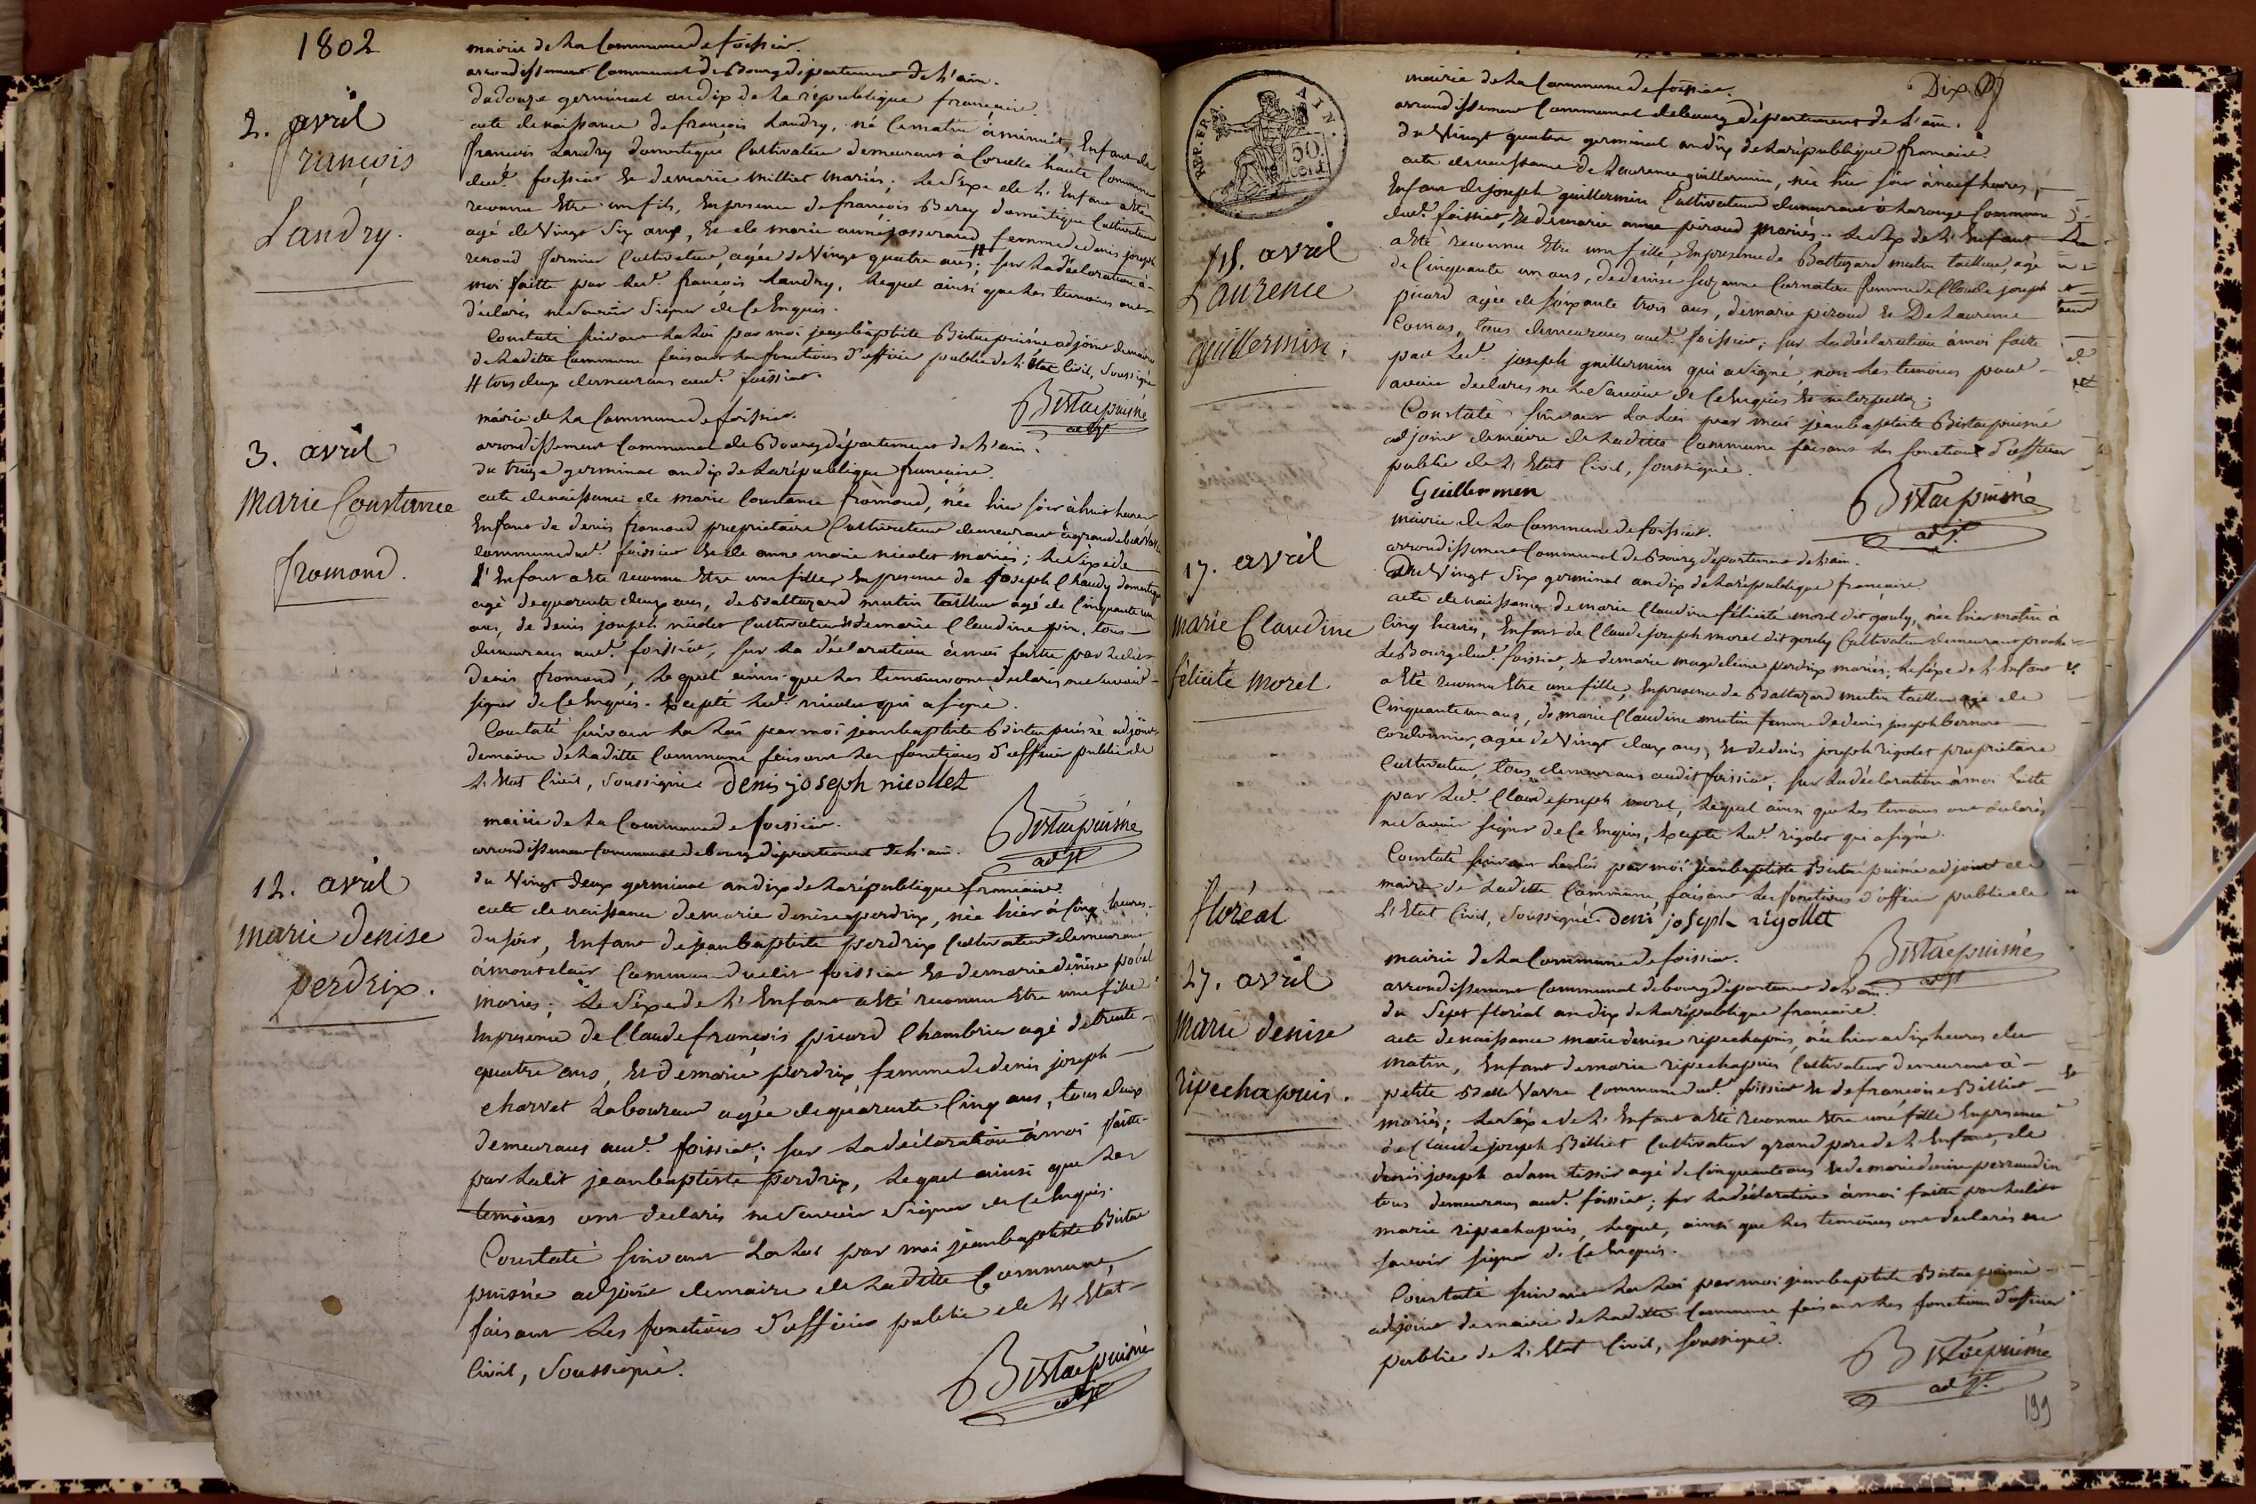 1802
mairie de La Commune de foissiat.
arrondissement Communal de Bourg département de L'ain.
du douze germinal an dix de La république française.
2. avril
François
Landry.
acte de naissance de françois Landry, né Ce matin à minuit, Enfant de
françois Landry domestique Cultivateur demeurant à Cornelle haute Commune
dud. foissiat Et de marie milliet mariés; Le Sexe de L'Enfant a Eté
reconnu Etre un fils, En presence de françois Berey domestique Cultivateur
agé de Vingt Six ans, Et de marie anne josserand femme de denis joseph
renoud fermier Cultivateur, agée de Vingt quatre ans; # sur La déclaration à
moi faitte par Led. françois Landry, Lequel ainsi que Les temoins ont
déclarés ne Savoir Signer de Ce Enquis.
Constaté Suivant La Loi par moi jean baptiste Bistae puisné adjoint de maire
de Laditte Commune faisant Les fonctions d'officier public de L'Etat Civil, Soussigné
# tous deux demeurans aud. foissiat.
Bistae puisné
adjt.
mairie de La Commune de foissiat.
arrondissement Communal de Bourg département de L'ain.
du treize germinal an dix de La république française.
3. avril
Marie Constance
fromond.
acte de naissance de marie Constance fromond, née hier soir à huit heures
Enfant de denis fromond proprietaire Cultivateur demeurant à grande
Commune dud. foissiat Et de anne marie nicolet mariés; Le Sexe de
L'Enfant a Eté reconnu Etre une fille, En presence de joseph Chaudy domestique
agé de quarente deux ans, de Baltazard mutin tailleur agé de Cinquante un
ans, de denis joseph nicolet Cultivateur Et de marie Claudine pin, tous
demeurans aud. foissiat, sur La déclaration à moi faitte par Ledit
denis fromond, Lequel ainsi que Les temoins ont déclarés ne Savoir
signer de Ce Enquis. Excepté Led. nicolet qui a signé.
Constaté Suivant La Loi par moi jean baptiste Bistae puisné adjoint
de maire de Laditte Commune faisant Les fonctions d'officier public de
L'Etat Civil, Soussigné denis joseph nicollet
Bistae puisné
adjt
mairie de La Commune de foissiat.
arrondissement Communal de bourg département de L'ain.
du Vingt deux germinal an dix de La république française.
12. avril
Marie denise
perdrix.
acte de naissance de marie denise perdrix, née hier à Cinq heures
du soir, Enfant de jean baptiste perdrix Cultivateur demeurant
à montclair Commune dudit foissiat Et de marie denise
mariés; Le Sexe de L'Enfant a Eté reconnu Etre une fille
En presence de Claude françois picard Chambrier agé de trente
quatre ans, Et de marie perdrix, femme de denis joseph
charvet Laboureur agée de quarente Cinq ans, tous deux
demeurans aud. foissiat; sur La déclaration à moi faitte
par Ledit jean baptiste perdrix, Lequel ainsi que Les
temoins ont déclarés ne Savoir Signer de Ce Enquis.
Constaté Suivant La Loi par moi jean baptiste Bistae
puisné adjoint de maire de Laditte Commune,
faisant Les fonctions d'officier public de L'Etat
Civil, Soussigné.
Bistae puisné
adjt
REP. FRA. AIN.
50.
CENT.
Dix
mairie de La Commune de foissiat.
arrondissement Communal de bourg département de L'ain.
du Vingt quatre germinal an dix de La république française.
15. avril
Laurence
guillermin.
acte de naissance de Laurence guillermin, née hier soir à neuf heures,
Enfant de joseph guillermin Cultivateur demeurant à Laronge Commune
dud. foissiat, Et de marie anne piroud mariés. Le Sexe de L'Enfant
a Eté reconnu Etre une fille En presence de Baltazard mutin tailleur, agé
de Cinquante un ans, de denise suzanne Carnateu femme de Claude joseph
picard agée de soixante trois ans, de marie piroud Et De Laurence
Comas, tous demeurans aud. foissiat; sur La déclaration à moi faite
par Led. joseph guillermin qui a signé, non Les temoins pour
avoir declarés ne Le Savoir de Ce Enquis Et interpellés.
Constaté suivant La Loi par moi jean baptiste Bistae puisné
adjoint de maire de Laditte Commune faisant Les fonctions d'officier
public de L'Etat Civil, soussigné.
Guillermin
Bistae puisné
adjt.
mairie de La Commune de foissiat.
arrondissement Communal de Bourg département de L'ain.
Du Vingt Six germinal an dix de La république française.
17. avril
Marie Claudine
félicité Morel.
acte de naissance de marie Claudine félicité morel dit gouly, née hier matin à
Cinq heures, Enfant de Claude joseph morel dit gouly Cultivateur demeurant proche
Le Bourg dud. foissiat, Et de marie magdeleine perdrix mariés. Le Sexe de L'Enfant
a Eté reconnu Etre une fille, En presence de Baltazard mutin tailleur agé de
Cinquante un ans, de marie Claudine mutin femme de denis joseph Bernard
Cordonnier, agée de Vingt deux ans, Et de denis joseph rigolet proprietaire
Cultivateur, tous demeurans audit foissiat, sur La déclaration à moi faitte
par Led. Claude joseph morel, Lequel ainsi que Les temoins ont declarés
ne Savoir signer de Ce Enquis, Excepté Led. rigolet qui a signé.
Constaté suivant La Loi par moi jean baptiste Bistae puisné adjoint de
maire de Laditte Commune, faisant Les fonctions d'officier public de
L'Etat Civil, Soussigné denis joseph rigollet
Bistae puisné
adjt
floréal
mairie de La Commune de foissiat.
arrondissement Communal de bourg département de L'ain.
du Sept floréal an dix de La république française.
27. avril
Marie denise
ripechapuis.
acte de naissance marie denise ripechapuis, née hier a dix heures du
matin, Enfant de marie ripechapuis Cultivateur demeurant à
petite Belle Vavre Commune dud. foissiat Et de françoise Billiet
mariés; Le Sexe de L'Enfant a Eté reconnu Etre une fille En presence
de Claude joseph Billiet Cultivateur grand pere de L'Enfant, de
denis joseph adam tissier agé de Cinquante ans Et de marie denise perraudin
tous demeurans aud. foissiat; sur La déclaration à moi faitte par Ledit
marie ripechapuis, Lequel, ainsi que Les temoins ont declarés ne
savoir signer de Ce Enquis.
Constaté suivant La Loi par moi jean baptiste Bistae puisné
adjoint de maire de Laditte Commune faisant Les fonctions d'officier
public de L'Etat Civil, soussigné.
Bistae puisné
adjt.
199